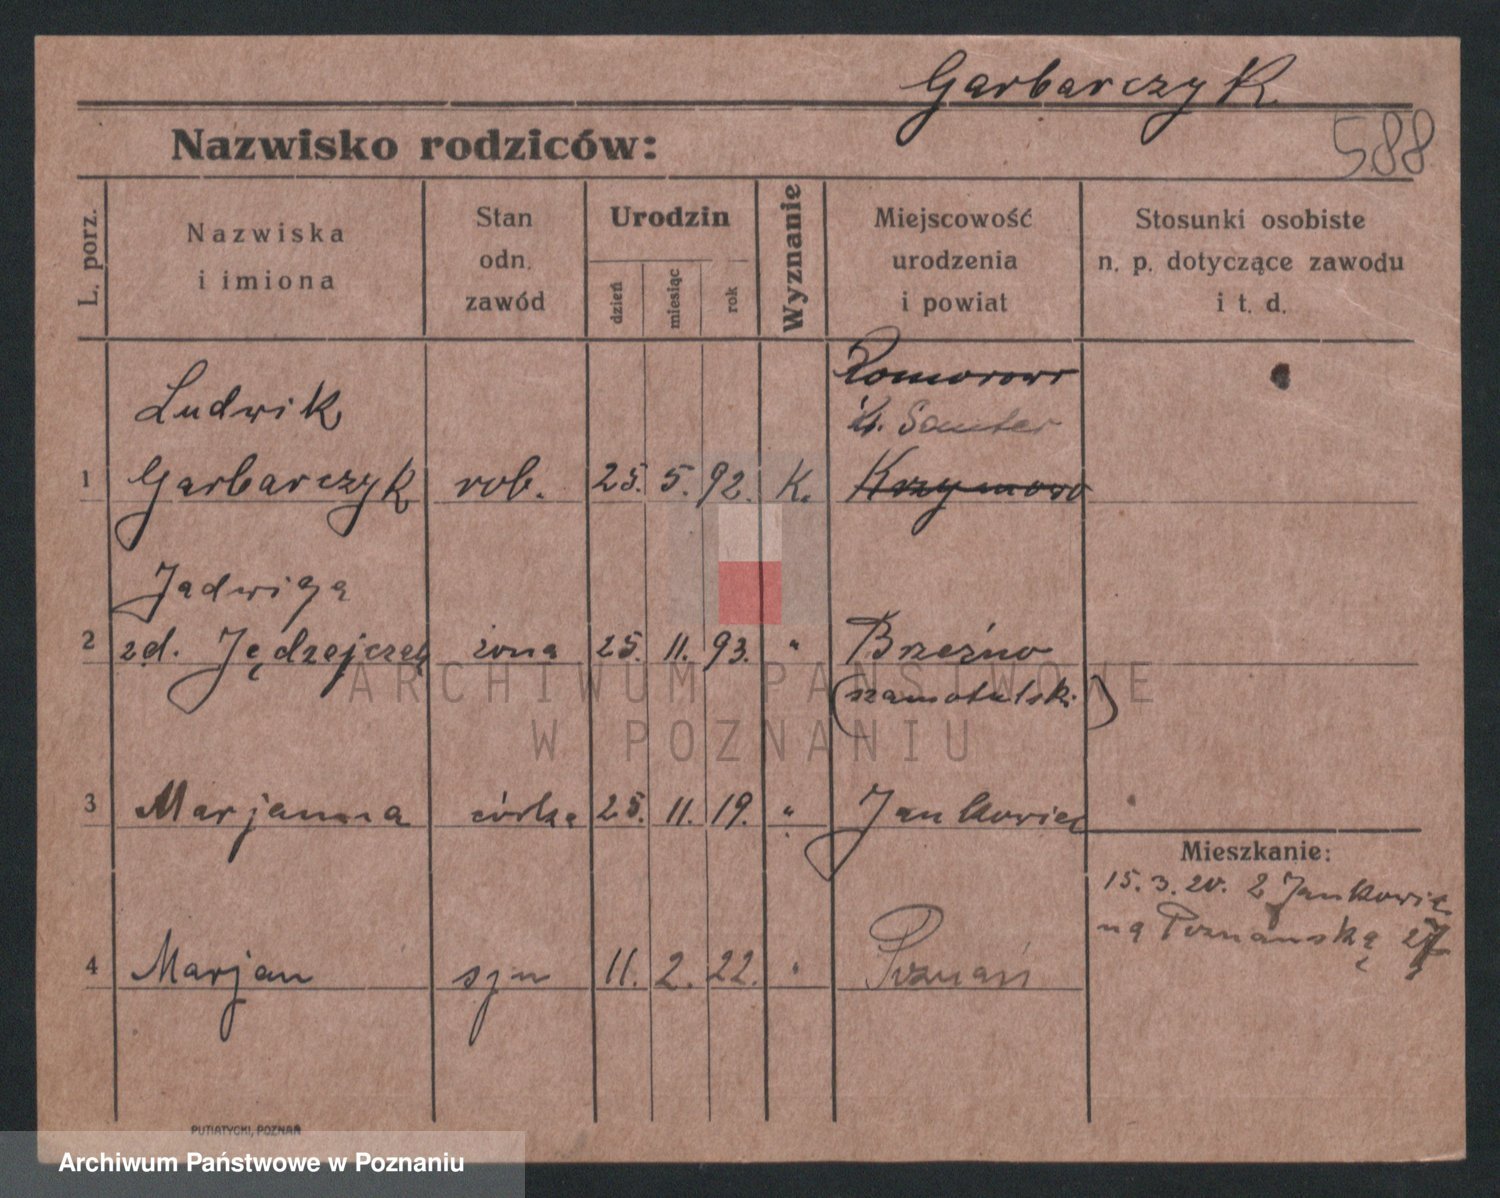 Garbarczyk
588
Nazwisko rodziców:
L. porz.
Nazwiska
i imiona
Stan
odn.
zawód
Urodzin
dzień
miesiąc
rok
Wyznanie
Miejscowość
urodzenia
i powiat
Stosunki osobiste
n. p. dotyczące zawodu
i t. d.
Ludwik
Komorowo
Samter
1 Garbarczyk rob. 25. 5. 92. K.
Jadwiga
2 zd. żona 25. 11. 93. " Brzeźno
(szamotulski)
3 Marjanna córka 25. 11. 19. " Jankowice
Mieszkanie:
15. 3. 20. z Jankowic
na Poznańską
4 Marjan syn 11. 2. 22. " Poznań
ARCHIWUM PAŃSTWOWE
W POZNANIU
PUTIATYCKI, POZNAŃ
Archiwum Państwowe w Poznaniu